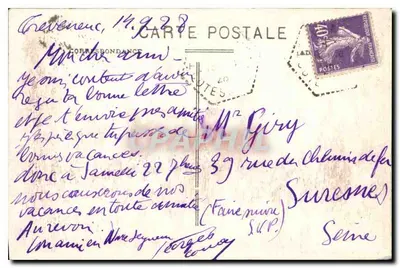 Treveneuc, 14.9.28
CARTE POSTALE
CORRESPONDANCE
Mon cher ami
Je suis content d'avoir
reçu ta bonne lettre
et je t'envoie mes amitiés
J'espère que tu passes de
bonnes vacances.
donc à Samedi 22
nous causerons de nos
vacances en toute amitié
Au revoir.
Ton ami
Georges
Mr Giry
39 rue de Chemin de fer
Suresnes
(Faire suivre
S.V.P.)
Seine